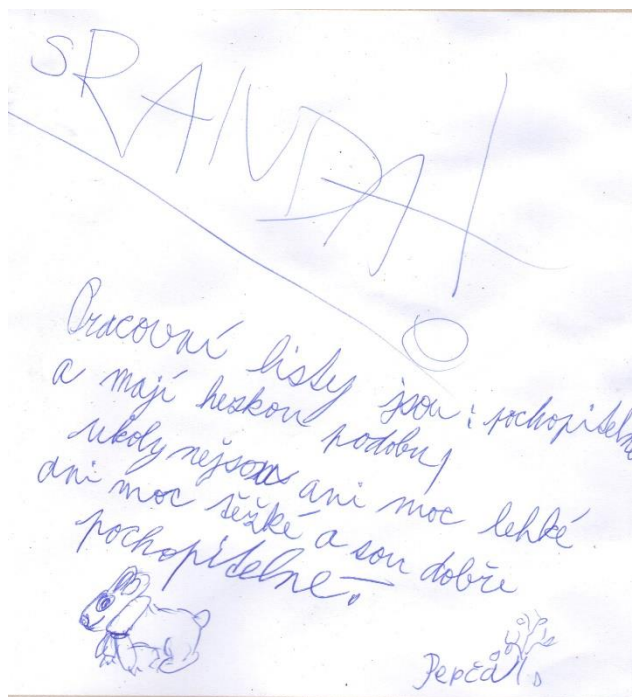 SRANDA!
Pracovní listy jsou: pochopitelné
a mají heskou podobu,
ukoly nejsou ani moc lehké
ani moc těžké a sou dobře
pochopitelné.
Pepča